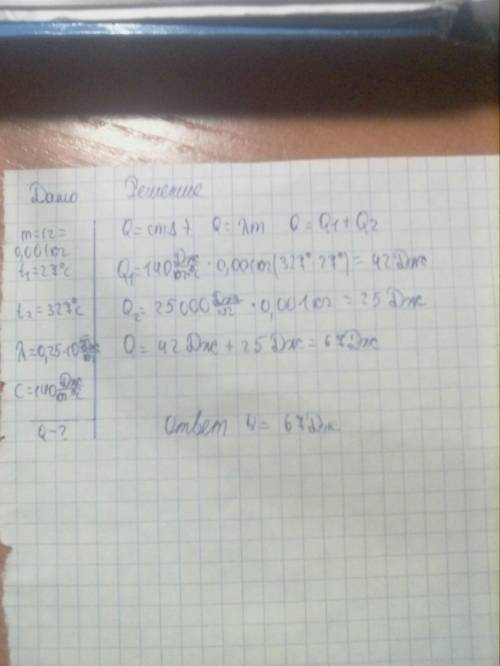 Дано
m=1г=
0,001кг
t₁=27°C
t₂=327°C
λ=0,25·10 Дж/кг
C=140 Дж/кг°C
Q-?
Решение
Q=cmΔt Q=λm Q=Q1+Q2
Q₁=140 Дж/кг°C·0,001кг(327°-27°)=42Дж
Q₂=25000 Дж/кг·0,001кг=25Дж
Q=42Дж+25Дж=67Дж
Ответ Q=67Дж